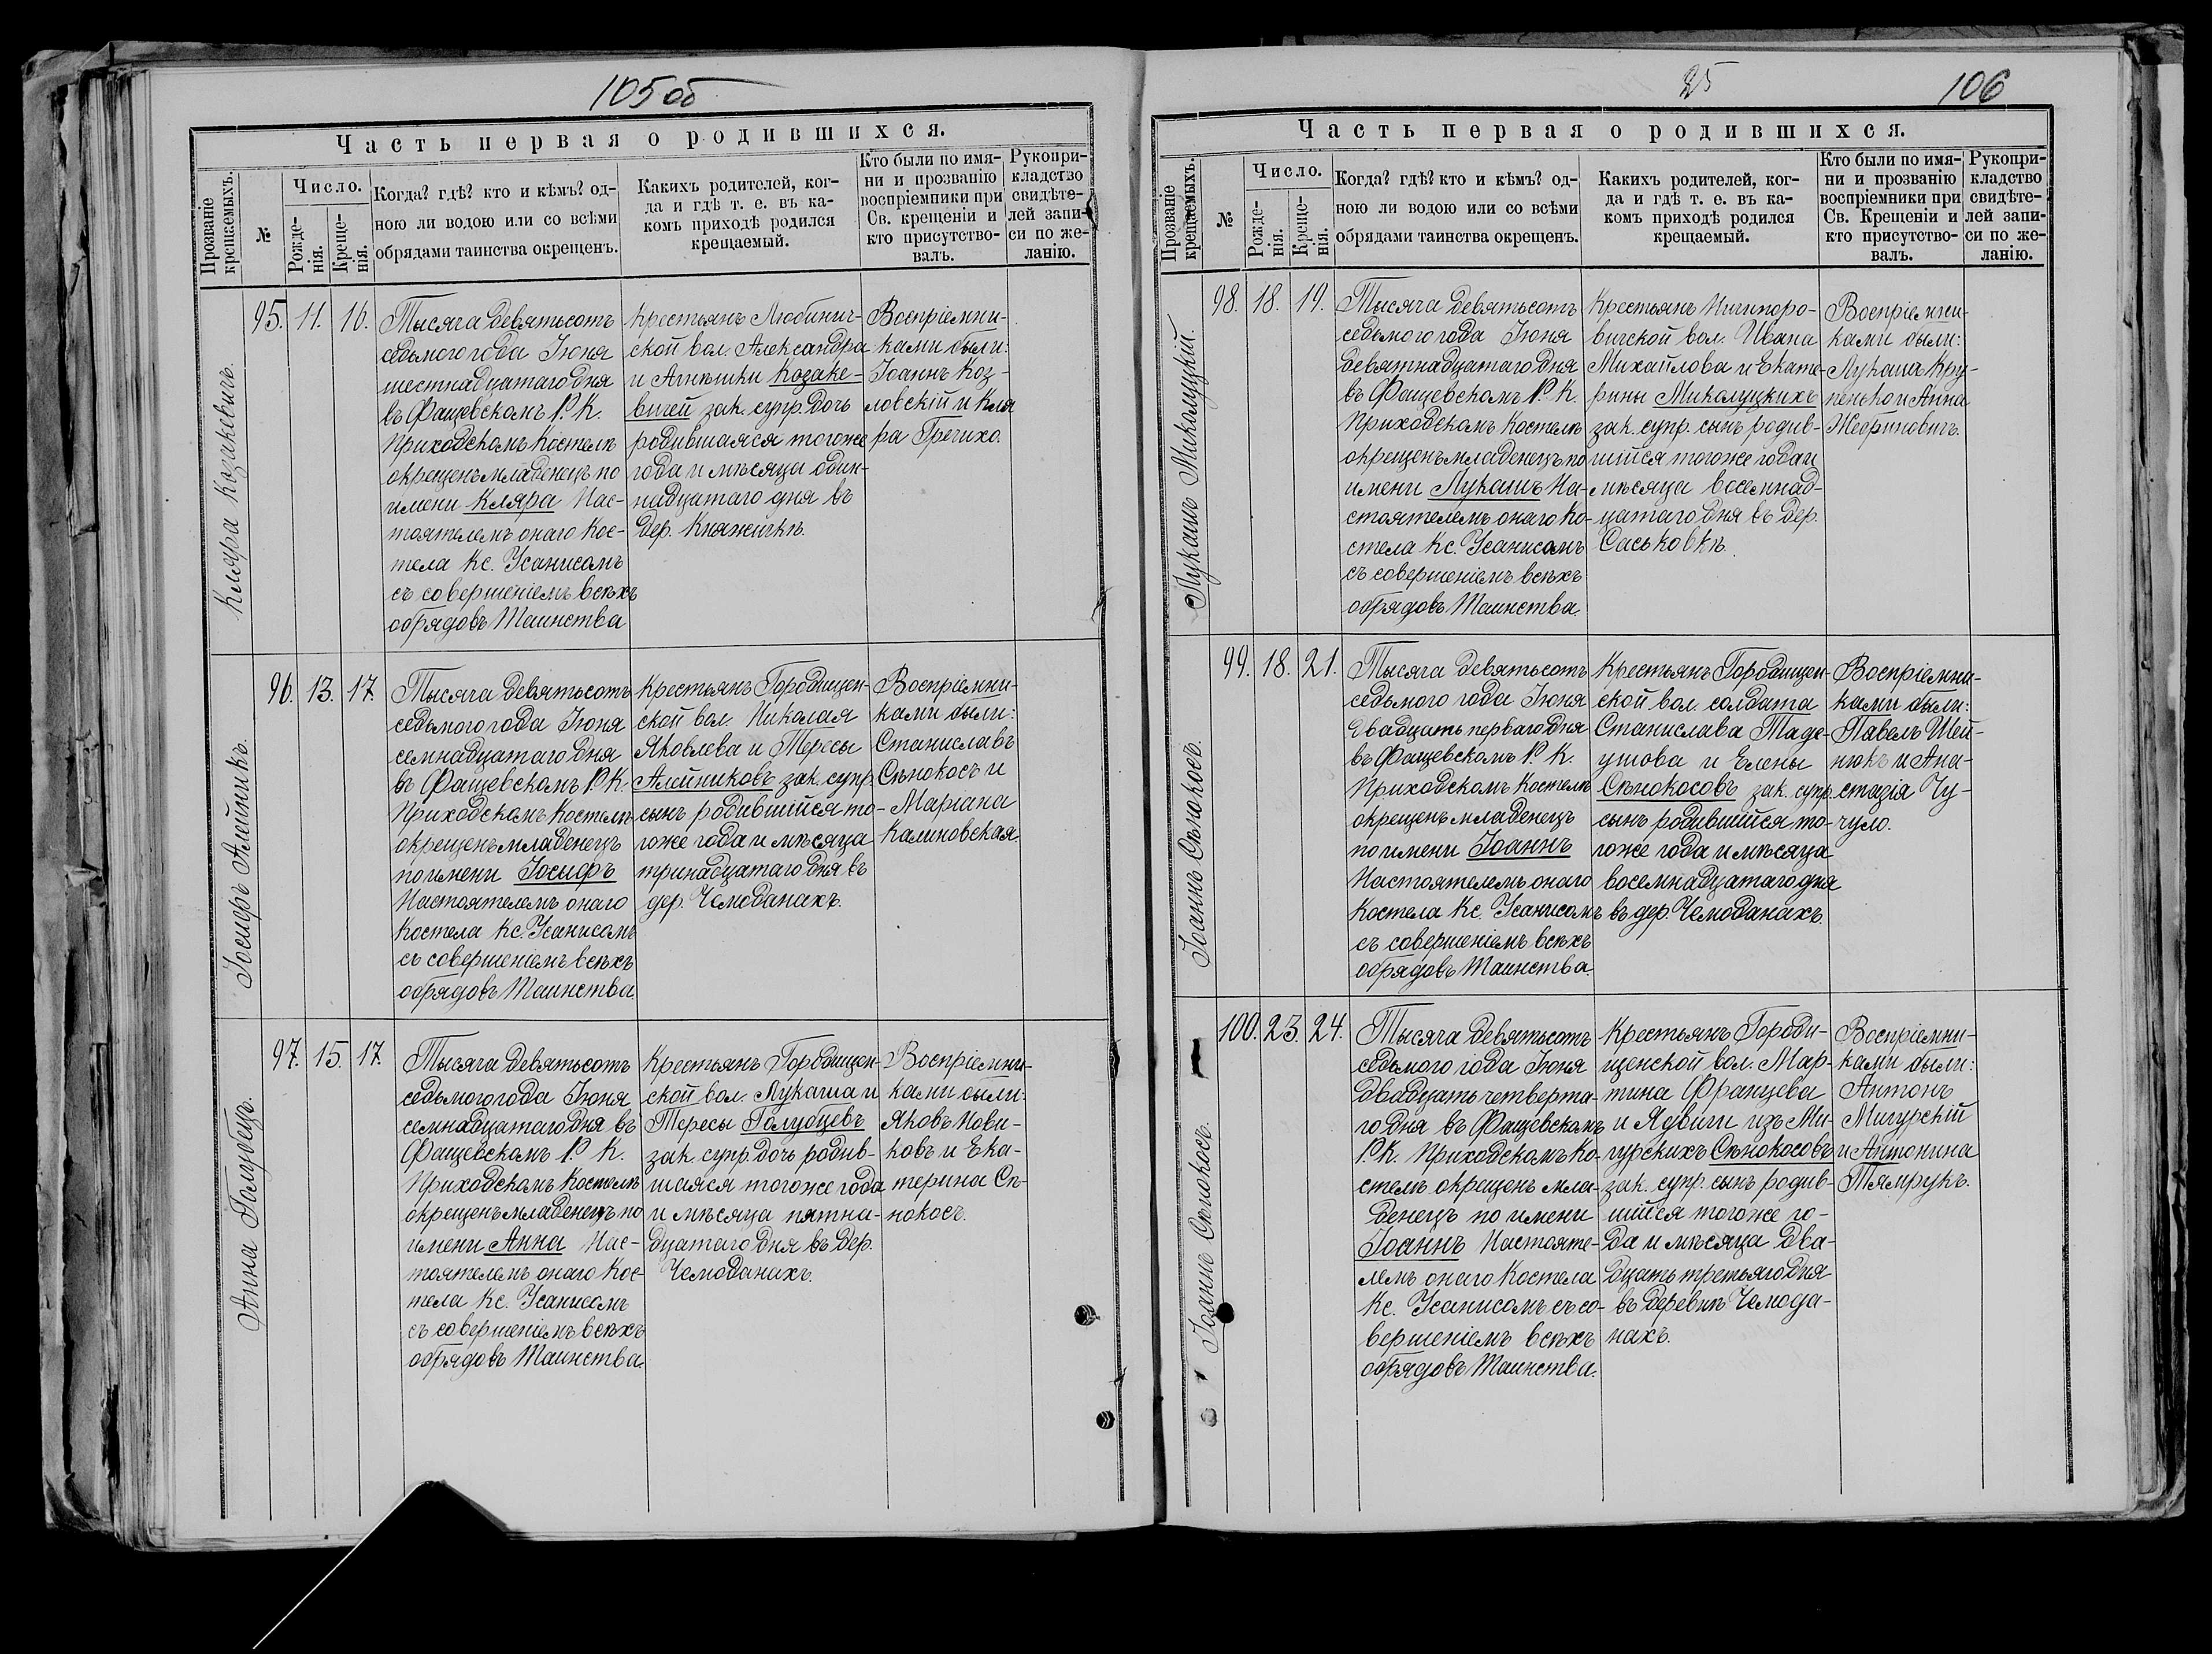 105 об
Часть первая о родившихся.
Прозваніе крещаемыхъ.
№
Число.
Рожде-
нія.
Креще-
нія.
Когда? гдѣ? кто и кѣмъ? од-
ною ли водою или со всѣми
обрядами таинства окрещенъ.
Какихъ родителей, ког-
да и гдѣ т. е. въ ка-
комъ приходѣ родился
крещаемый.
Кто были по имя-
ни и прозванію
воспріемники при
Св. крещеніи и
кто присутство-
валъ.
Рукопри-
кладство
свидѣте-
лей запи-
си по же-
ланію.
Кляра Козакевичъ
95. 11. 16.
Тысяча девятьсотъ
седьмого года Іюня
шестнадцатаго дня
въ Фащевскомъ Р. К.
Приходскомъ Костелѣ
окрещенъ младенецъ по
имени Кляра Нас-
тоятелемъ онаго Кос-
тела Кс. Усанисомъ
съ совершеніемъ всѣхъ
обрядовъ Таинства
Крестьянъ Любинич-
ской вол. Александра
и Агнѣшки Козаке-
вичей зак. супр. дочь
родившаяся тогоже
года и мѣсяца один-
надцатаго дня въ
дер. Княжицѣ.
Воспріемни-
ками были:
Іоаннъ Коз-
ловскій и Кля
ра Гречихо.
Іосифъ Алейникъ.
96. 13. 17.
Тысяча девятьсотъ
седьмого года Іюня
семнадцатаго дня
въ Фащевскомъ Р. К.
Приходскомъ Костелѣ
окрещенъ младенецъ
по имени Іосифъ
Настоятелемъ онаго
Костела Кс. Усанисомъ
съ совершеніемъ всѣхъ
обрядовъ Таинства.
Крестьянъ Городищен-
ской вол. Николая
Яковлева и Тересы
Алейниковъ зак. супр.
сынъ родившійся то-
гоже года и мѣсяца
тринадцатаго дня въ
дер. Чемоданахъ.
Воспріемни-
ками были:
Станиславъ
Сѣнокосъ и
Маріана
Калиновская.
Анна Голубецъ.
97. 15. 17.
Тысяча девятьсотъ
седьмого года Іюня
семнадцатаго дня въ
Фащевскомъ Р. К.
Приходскомъ Костелѣ
окрещенъ младенецъ по
имени Анна Нас-
тоятелемъ онаго Кос-
тела Кс. Усанисомъ
съ совершеніемъ всѣхъ
обрядовъ Таинства.
Крестьянъ Городищен-
ской вол. Лукаша и
Тересы Голубцевъ
зак. супр. дочь родив-
шаяся тогоже года
и мѣсяца пятна-
дцатаго дня въ дер.
Чемоданахъ.
Воспріемни-
ками были:
Яковъ Нови-
ковъ и Ека-
терина Сѣ-
нокосъ.
25
106
Часть первая о родившихся.
Прозваніе крещаемыхъ.
№
Число.
Рожде-
нія.
Креще-
нія.
Когда? гдѣ? кто и кѣмъ? од-
ною ли водою или со всѣми
обрядами таинства окрещенъ.
Какихъ родителей, ког-
да и гдѣ т. е. въ ка-
комъ приходѣ родился
крещаемый.
Кто были по имя-
ни и прозванію
воспріемники при
Св. Крещеніи и
кто присутство-
валъ.
Рукопри-
кладство
свидѣте-
лей запи-
си по же-
ланію.
Лукашъ Миколуцкій.
98. 18. 19.
Тысяча девятьсотъ
седьмого года Іюня
девятнадцатаго дня
въ Фащевскомъ Р. К.
Приходскомъ Костелѣ
окрещенъ младенецъ по
имени Лукашъ На-
стоятелемъ онаго Ко-
стела Кс. Усанисомъ
съ совершеніемъ всѣхъ
обрядовъ Таинства.
Крестьянъ Ничипоро-
вичской вол. Ивана
Михайлова и Екате-
рины Миколуцкихъ
зак. супр. сынъ родив-
шійся тогоже года и
мѣсяца восемнад-
цатаго дня въ дер.
Саськовкѣ.
Воспріемни-
ками были:
Лукаша Кру-
пенько и Анна
Жебриновичъ.
Іоаннъ Сѣнокосъ.
99. 18. 21.
Тысяча девятьсотъ
седьмого года Іюня
двадцать перваго дня
въ Фащевскомъ Р. К.
Приходскомъ Костелѣ
окрещенъ младенецъ
по имени Іоаннъ
Настоятелемъ онаго
Костела Кс. Усанисомъ
съ совершеніемъ всѣхъ
обрядовъ Таинства.
Крестьянъ Городищен-
ской вол. солдата
Станислава Таде-
ушова и Елены
Сѣнокосовъ зак. супр.
сынъ родившійся то-
гоже года и мѣсяца
восемнадцатаго дня
въ дер. Чемоданахъ.
Воспріемни-
ками были:
Павелъ Шей-
нюкъ и Ана-
стазія Чу-
чуло.
Іоаннъ Сѣнокосъ.
100. 23. 24.
Тысяча девятьсотъ
седьмого года Іюня
двадцать четверта-
го дня въ Фащевскомъ
Р. К. Приходскомъ Ко-
стелѣ окрещенъ мла-
денецъ по имени
Іоаннъ Настояте-
лемъ онаго Костела
Кс. Усанисомъ съ со-
вершеніемъ всѣхъ
обрядовъ Таинства.
Крестьянъ Городи-
щенской вол. Мар-
тина Францева
и Ядвиги изъ Ми-
гурскихъ Сѣнокосовъ
зак. супр. сынъ родив-
шійся тогоже го-
да и мѣсяца два-
дцать третьяго дня
въ деревнѣ Чемода-
нахъ.
Воспріемни-
ками были:
Антонъ
Мигурскій
и Антонина
Тямрукъ.